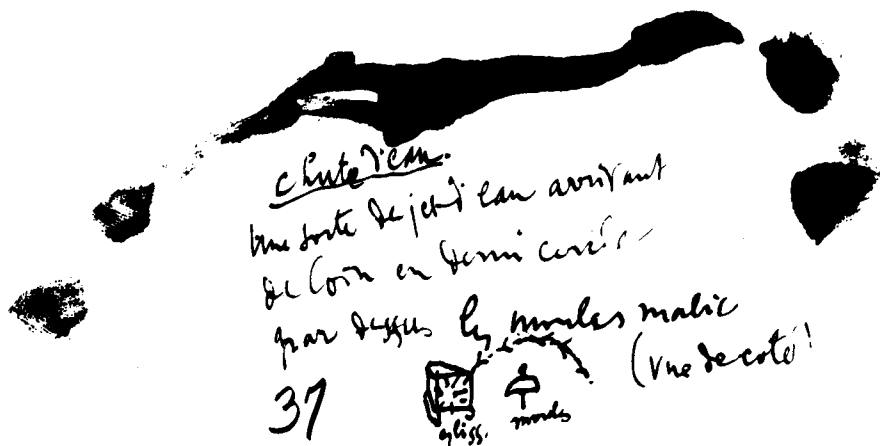 chute d'eau.
Une sorte de jet d'eau arrivant
de loin en demi cercle —
par dessus les moules malic
(vue de coté)
37
gliss. moules